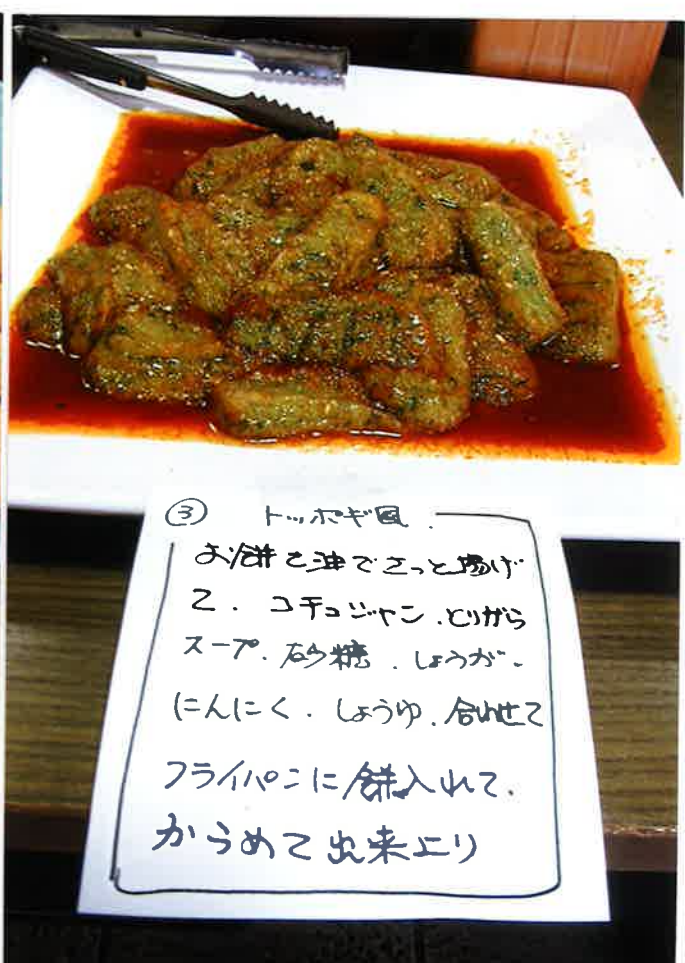 ③ トッポギ風
お餅を油でさっと揚げ
て、コチュジャン、とりがら
スープ、砂糖、しょうが、
にんにく、しょうゆ、合わせて
フライパンに餅入れて、
からめて出来上り